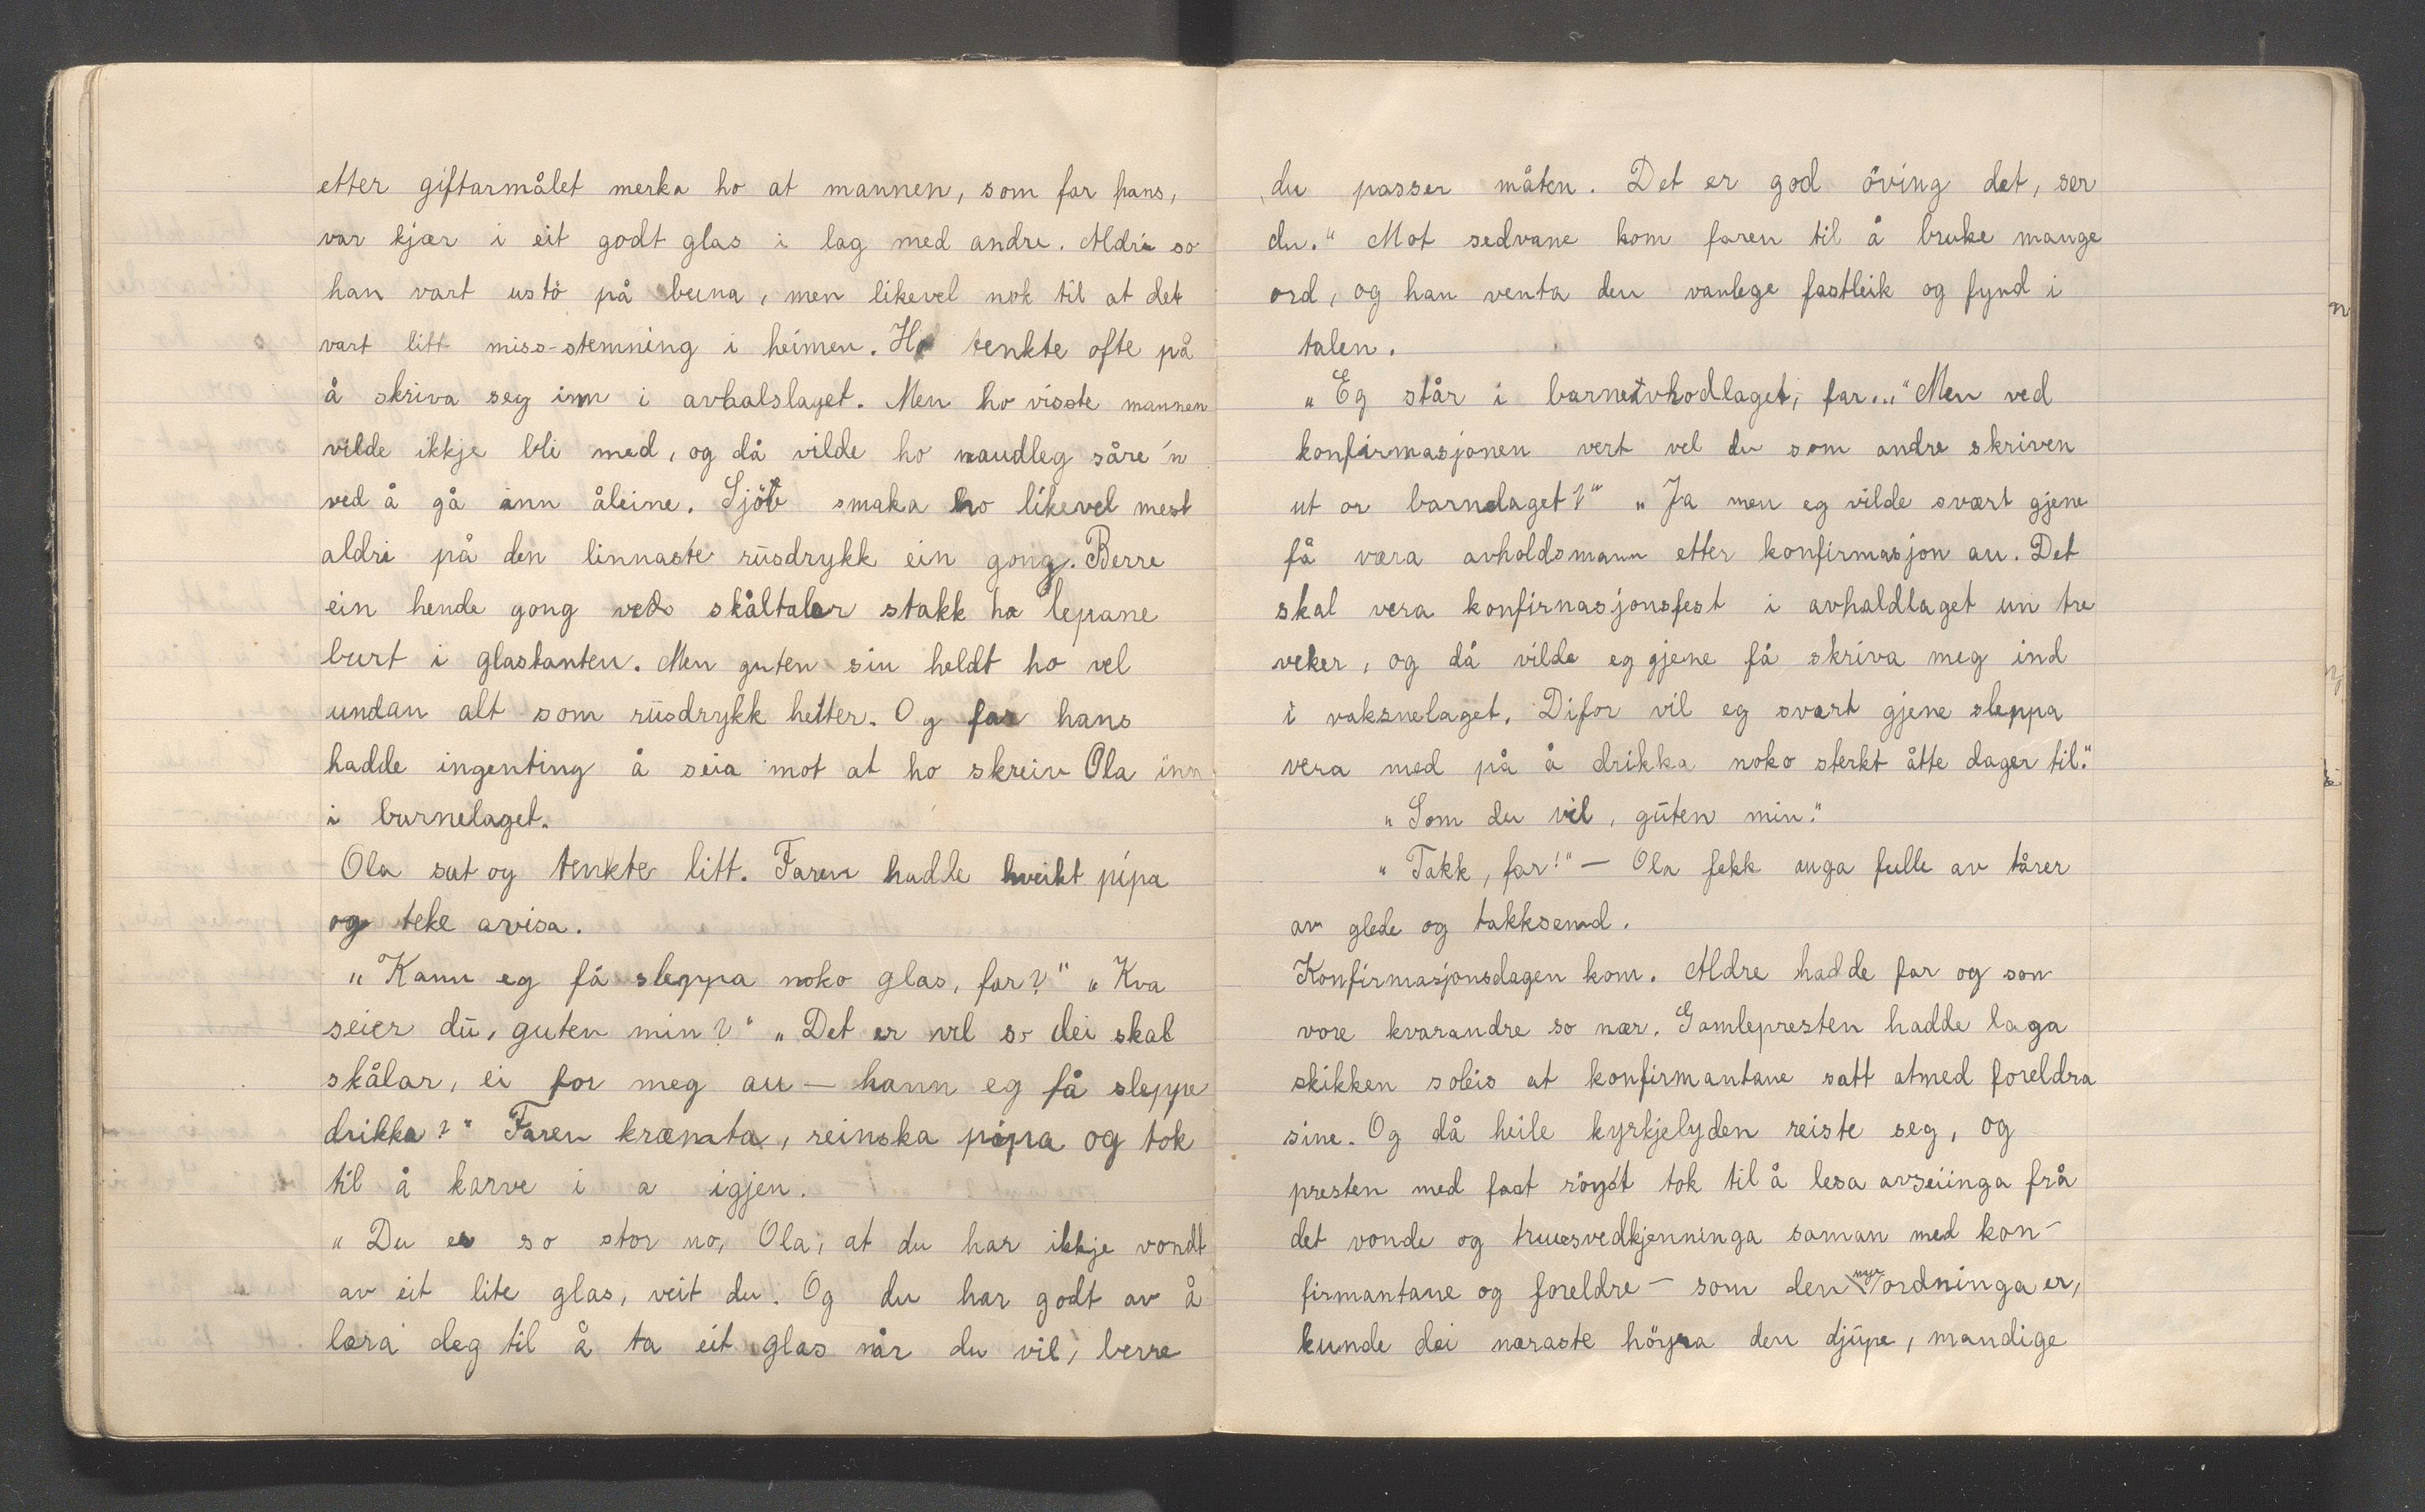 etter giftarmålet merka ho at mannen, som far hans,
var kjær i eit godt glas i lag med andre. Aldri so
han vart ustö på beina, men likevel nok til at det
vart litt miss-stemning i heimen. Ho tenkte ofte på
å skriva seg inn i avhalslaget. Men ho visste mannen
vilde ikkje bli med, og då vilde ho naudleg såre 'n
ved å gå inn åleine. Sjöl smaka ho likevel mest
aldri på den linnaste rusdrykk ein gong. Berre
ein hende gong ved skåltaler stakk ho lepane
burt i glaskanten. Men guten sin heldt ho vel
undan alt som rusdrykk heiter. Og far hans
hadde ingenting å seia mot at ho skreiv Ola inn
i barnelaget.
Ola sat og tenkte litt. Faren hadde kveikt pipa
og teke avisa.
„Kann eg få sleppa noko glas, far?" „Kva
seier du, guten min?" „Det er vel so dei skal
skålar, ei for meg au — kann eg få sleppe
drikka?" Faren kræmta, reinska pipa og tok
til å karve i a igjen.
„Du er so stor no, Ola, at du har ikkje vondt
av eit lite glas, veit du. Og du har godt av å
læra deg til å ta eit glas når du vil, berre
du passer måten. Det er god öving det, ser
du." Mot sedvane kom faren til å bruke mange
ord, og han venta den vanlege fastleik og fynd i
talen.
„Eg står i barneavhodlaget, far..." Men ved
konfirmasjonen vert vel du som andre skriven
ut or barnelaget?" „Ja men eg vilde svært gjene
få væra avholdsmann etter konfirmasjon au. Det
skal vera konfirnasjonsfest i avhaldlaget un tre
veker, og då vilde eg gjene få skriva meg ind
i vaksnelaget. Difor vil eg svært gjene sleppa
vera med på å drikka noko sterkt åtte dager til."
„Som du vil, guten min."
„Takk, far!" — Ola fekk auga fulle av tårer
av glede og takksemd.
Konfirmasjonsdagen kom. Aldre hadde far og son
vore kvarandre so nær. Gamlepresten hadde laga
skikken soleis at konfirmantane satt atmed foreldra
sine. Og då heile kyrkjelyden reiste seg, og
presten med fast röyst tok til å lesa avseiinga frå
det vonde og truesvedkjenninga saman med kon-
firmantane og foreldre — som den nye ordninga er,
kunde dei næraste höyra den djupe, mandige